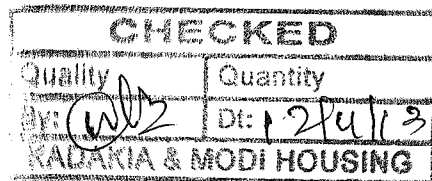 CHECKED
Quality Quantity
By: Dt: 12/4/13
KADAKIA & MODI HOUSING